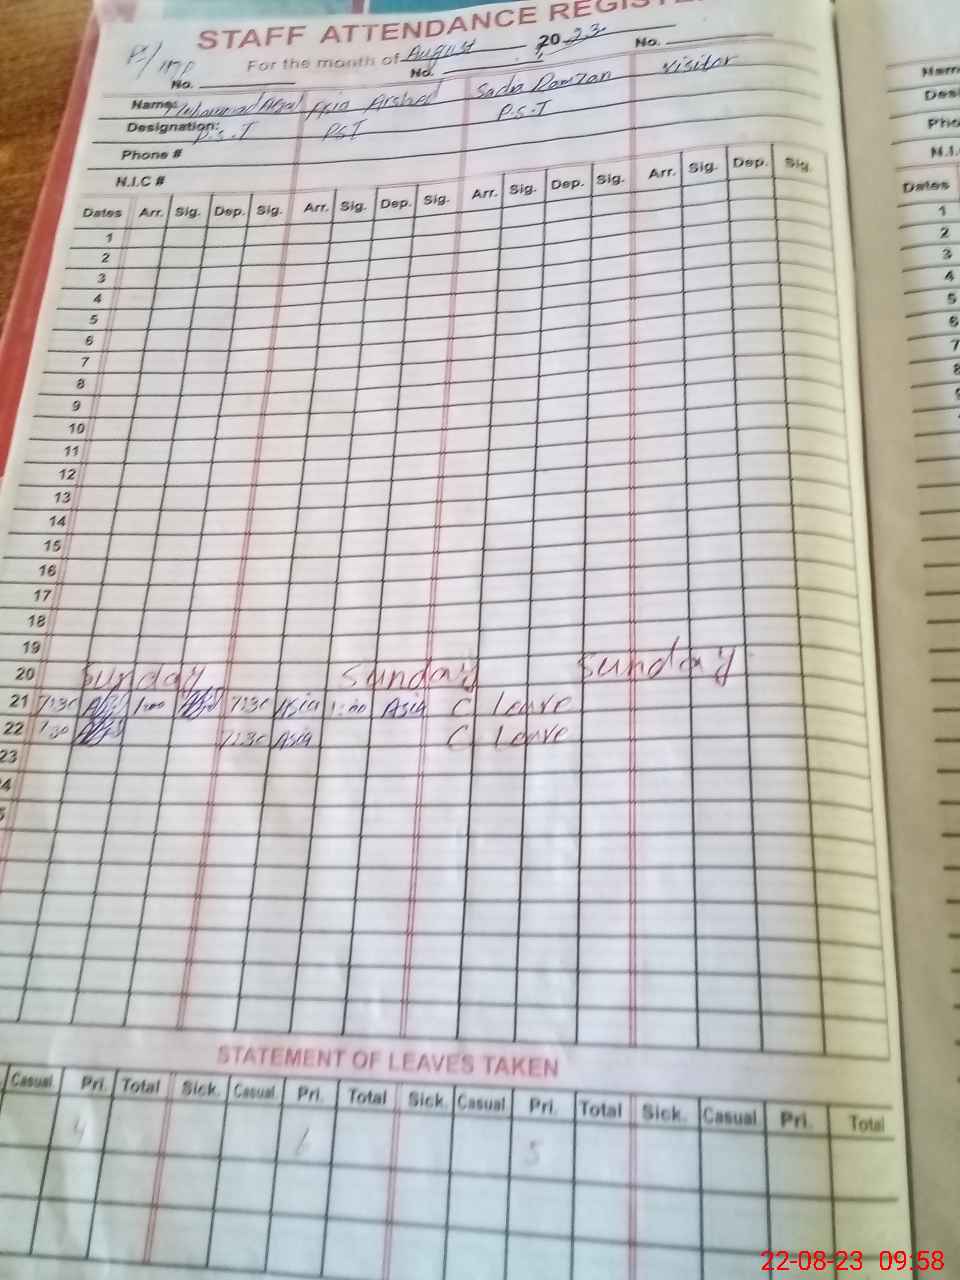 STAFF ATTENDANCE REGISTE
For the month of August 2023
No. No. No.
Name: Muhammad Afzal Asia Arshad Sadia Ramzan Visitor
Designation: P.S.T PST P.S.T
Phone #
N.I.C #
Dates Arr. Sig. Dep. Sig. Arr. Sig. Dep. Sig. Arr. Sig. Dep. Sig. Arr. Sig. Dep. Sig.
1
2
3
4
5
6
7
8
9
10
11
12
13
14
15
16
17
18
19
20 Sunday Sunday Sunday
21 7:30 1:00 7:30 Asia 1:00 Asia C Leave
22 7:30 7:30 Asia C Leave
23
4
5
STATEMENT OF LEAVES TAKEN
Casual Pri. Total Sick. Casual Pri. Total Sick. Casual Pri. Total Sick. Casual Pri. Total
4 6 5
Nam
Desi
Pho
N.I.
Dates
1
2
3
4
5
6
7
8
22-08-23 09:58